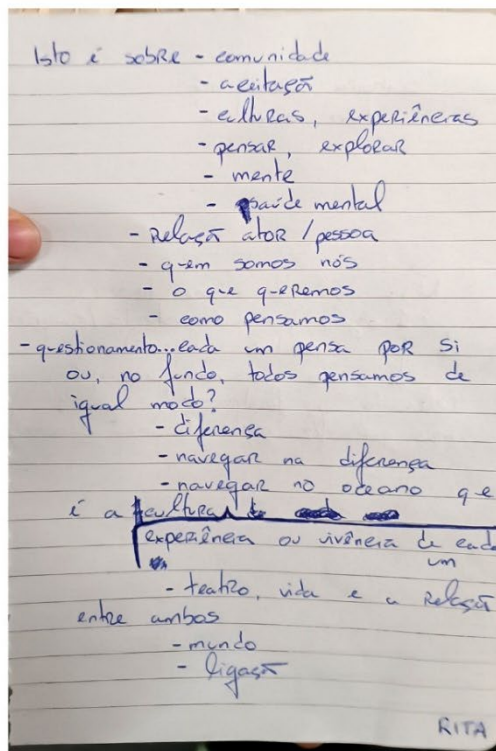 Isto é sobre - comunidade
- aceitação
- culturas, experiências
- pensar, explorar
- mente
- saúde mental
- Relação ator / pessoa
- quem somos nós
- o que queremos
- como pensamos
- questionamento... cada um pensa por si
ou, no fundo, todos pensamos de
igual modo?
- diferença
- navegar na diferença
- navegar no oceano que
é a cultura
experiência ou vivência de cada
um
- teatro, vida e a relação
entre ambos
- mundo
- ligação
RITA